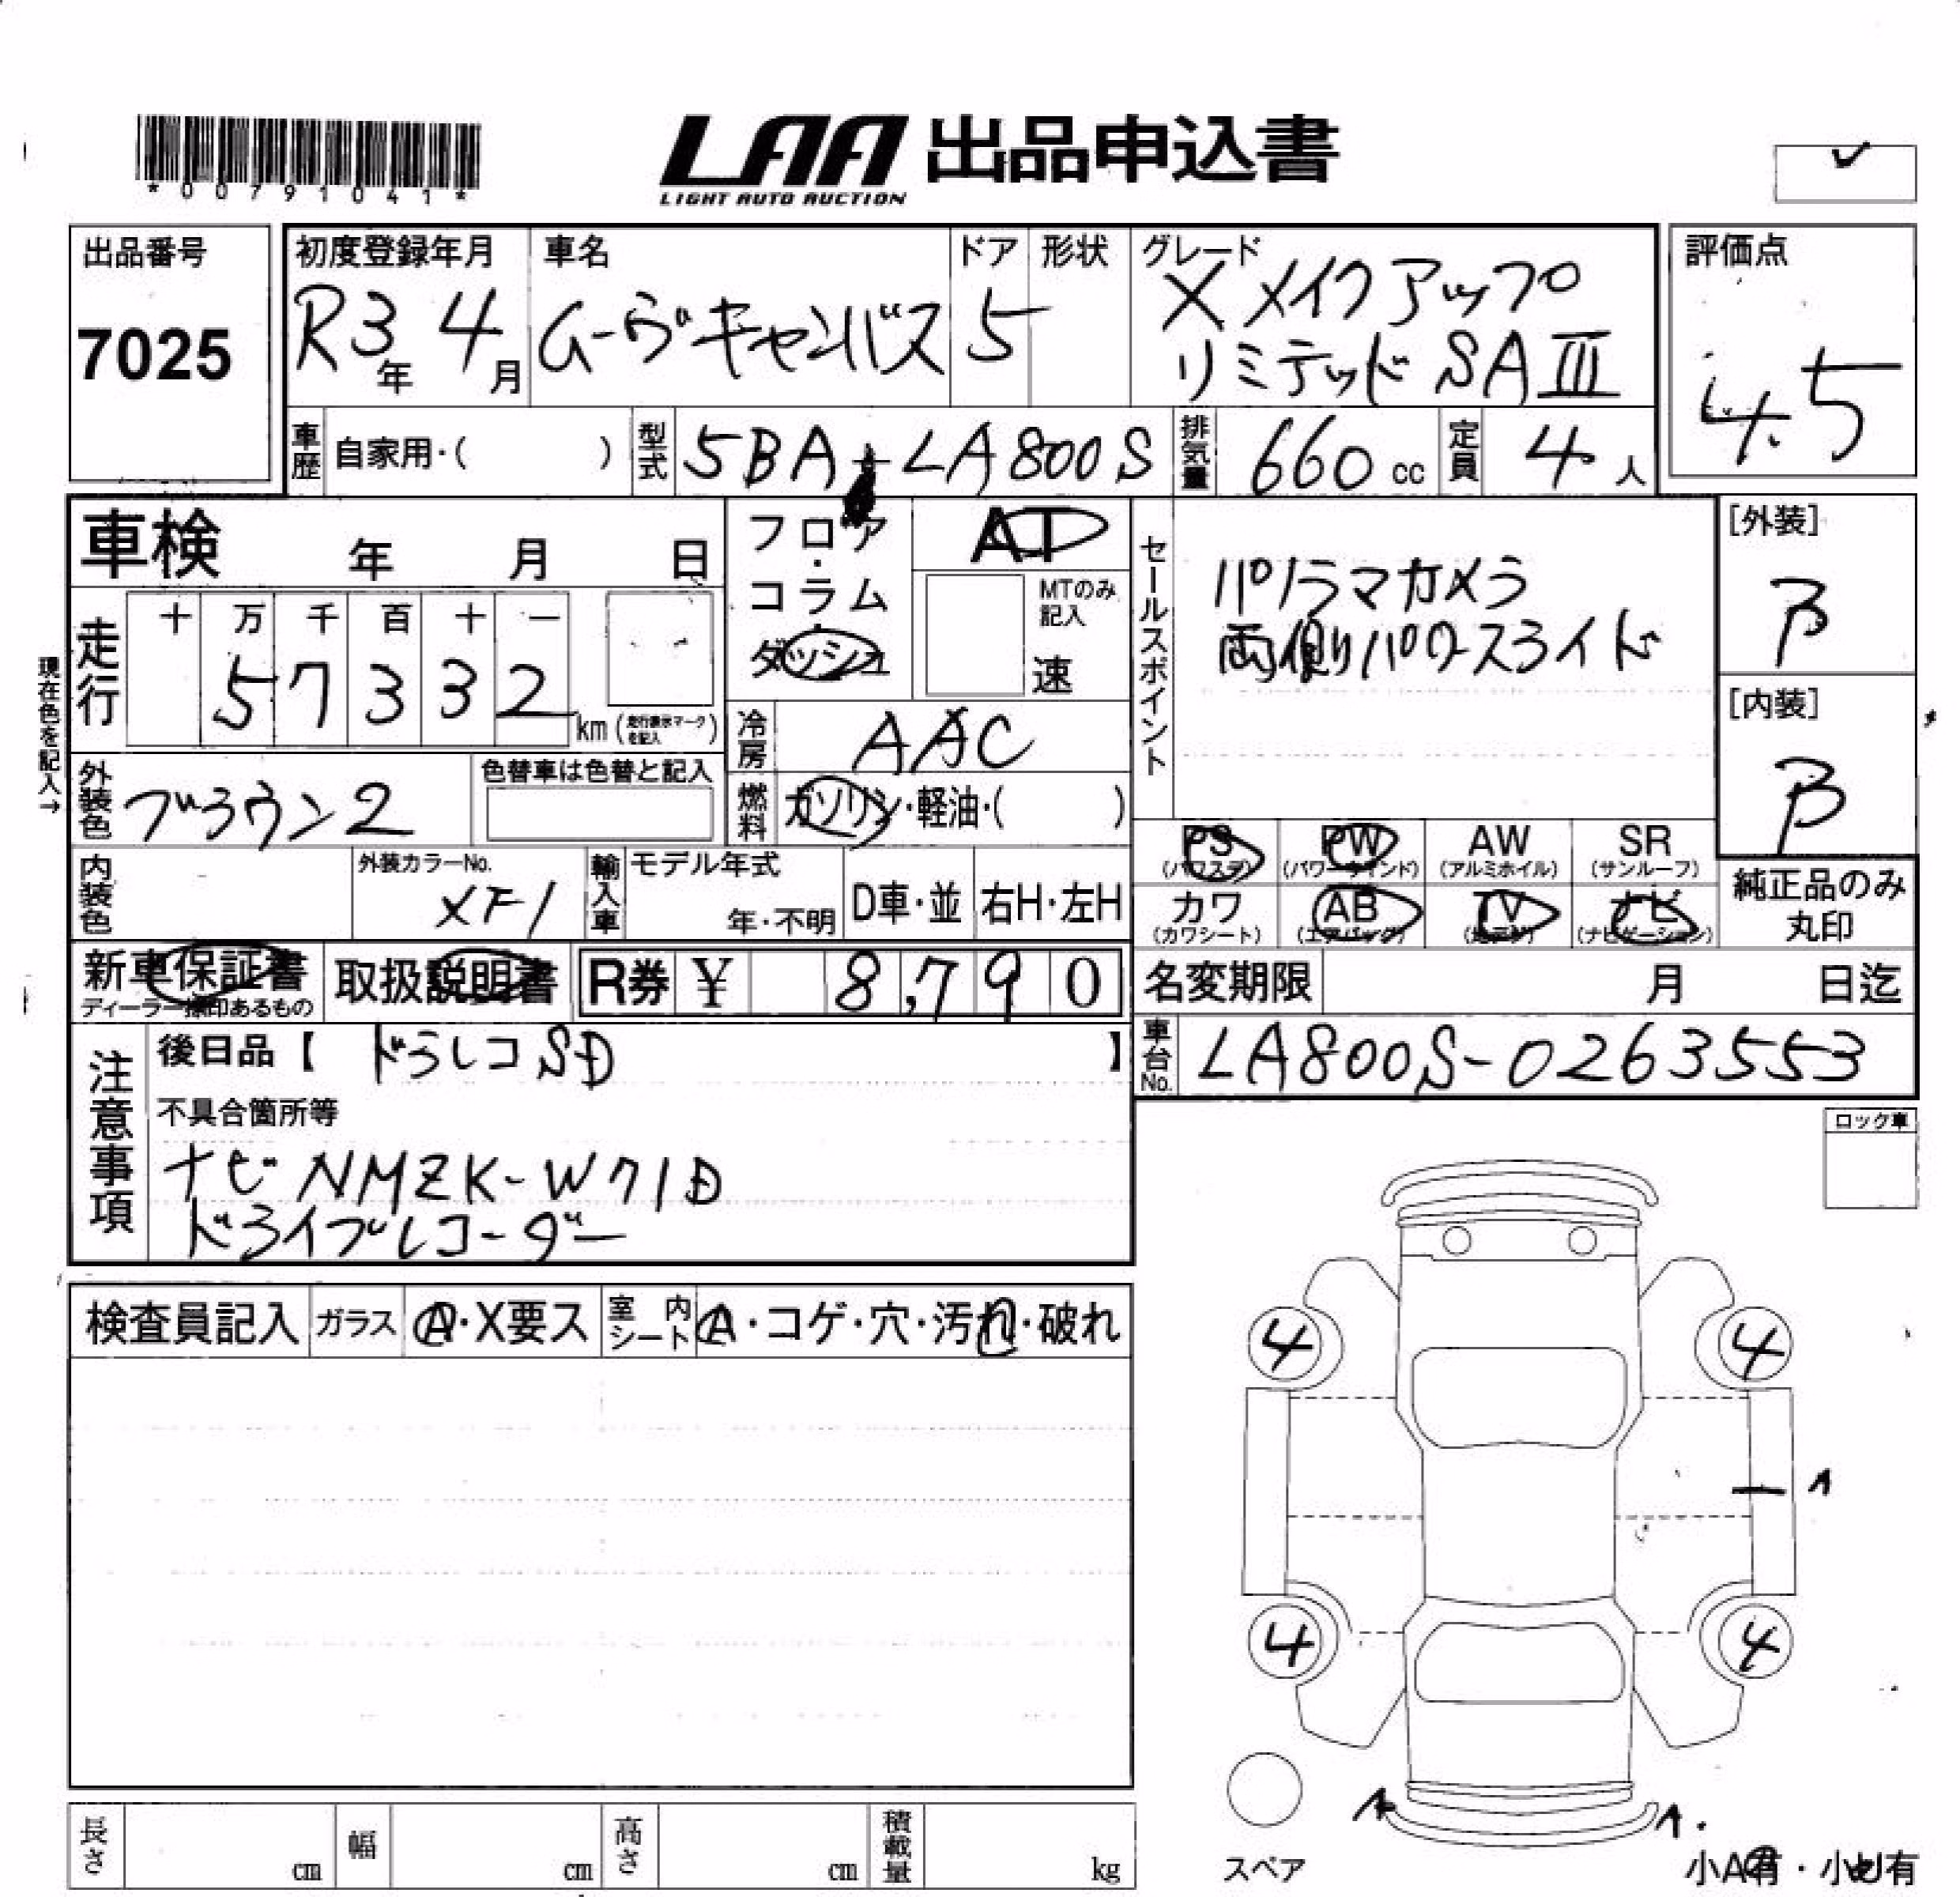 *00791041*
LAA 出品申込書
LIGHT AUTO AUCTION
出品番号
7025
初度登録年月
R3年 4月
車名
ムーヴキャンバス
ドア
5
形状
グレード
X メイクアップ
リミテッド SAⅢ
評価点
4.5
車歴 自家用・( )
型式 5BA-LA800S
排気量 660 cc
定員 4 人
車検 年 月 日
フロア・コラム・ダッシュ
AT
MTのみ記入
速
セールスポイント
パノラマカメラ
両側パワースライド
[外装]
B
[内装]
B
現在色を記入→
走行
十 万 千 百 十 一
5 7 3 3 2
km (走行表示マークを記入)
冷房 AAC
外装色 ブラウン2
色替車は色替と記入
燃料 ガソリン・軽油・( )
内装色
外装カラーNo.
XF1
輸入車
モデル年式
年・不明
D車・並
右H・左H
PS (パワステ)
PW (パワーウインド)
AW (アルミホイル)
SR (サンルーフ)
カワ (カワシート)
AB (エアバッグ)
TV (地デジ)
ナビ (ナビゲーション)
純正品のみ
丸印
新車保証書
ディーラー捺印あるもの
取扱説明書
R券 ¥ 8,790
名変期限 月 日迄
車台No. LA800S-0263553
注意事項
後日品【 ドラレコSD 】
不具合箇所等
ナビ NMZK-W71D
ドライブレコーダー
ロック車
検査員記入
ガラス A・X要ス
室内シート A・コゲ・穴・汚れ・破れ
4 4
A
4 4
A A
スペア
小A有・小U有
長さ cm
幅 cm
高さ cm
積載量 kg